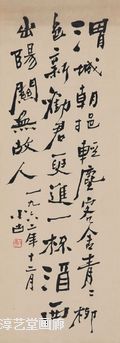 渭城朝挹輕塵客舍青〻柳
色新勸君更進一杯酒西
出陽關無故人 一九六二年十二月
淳艺堂画廊